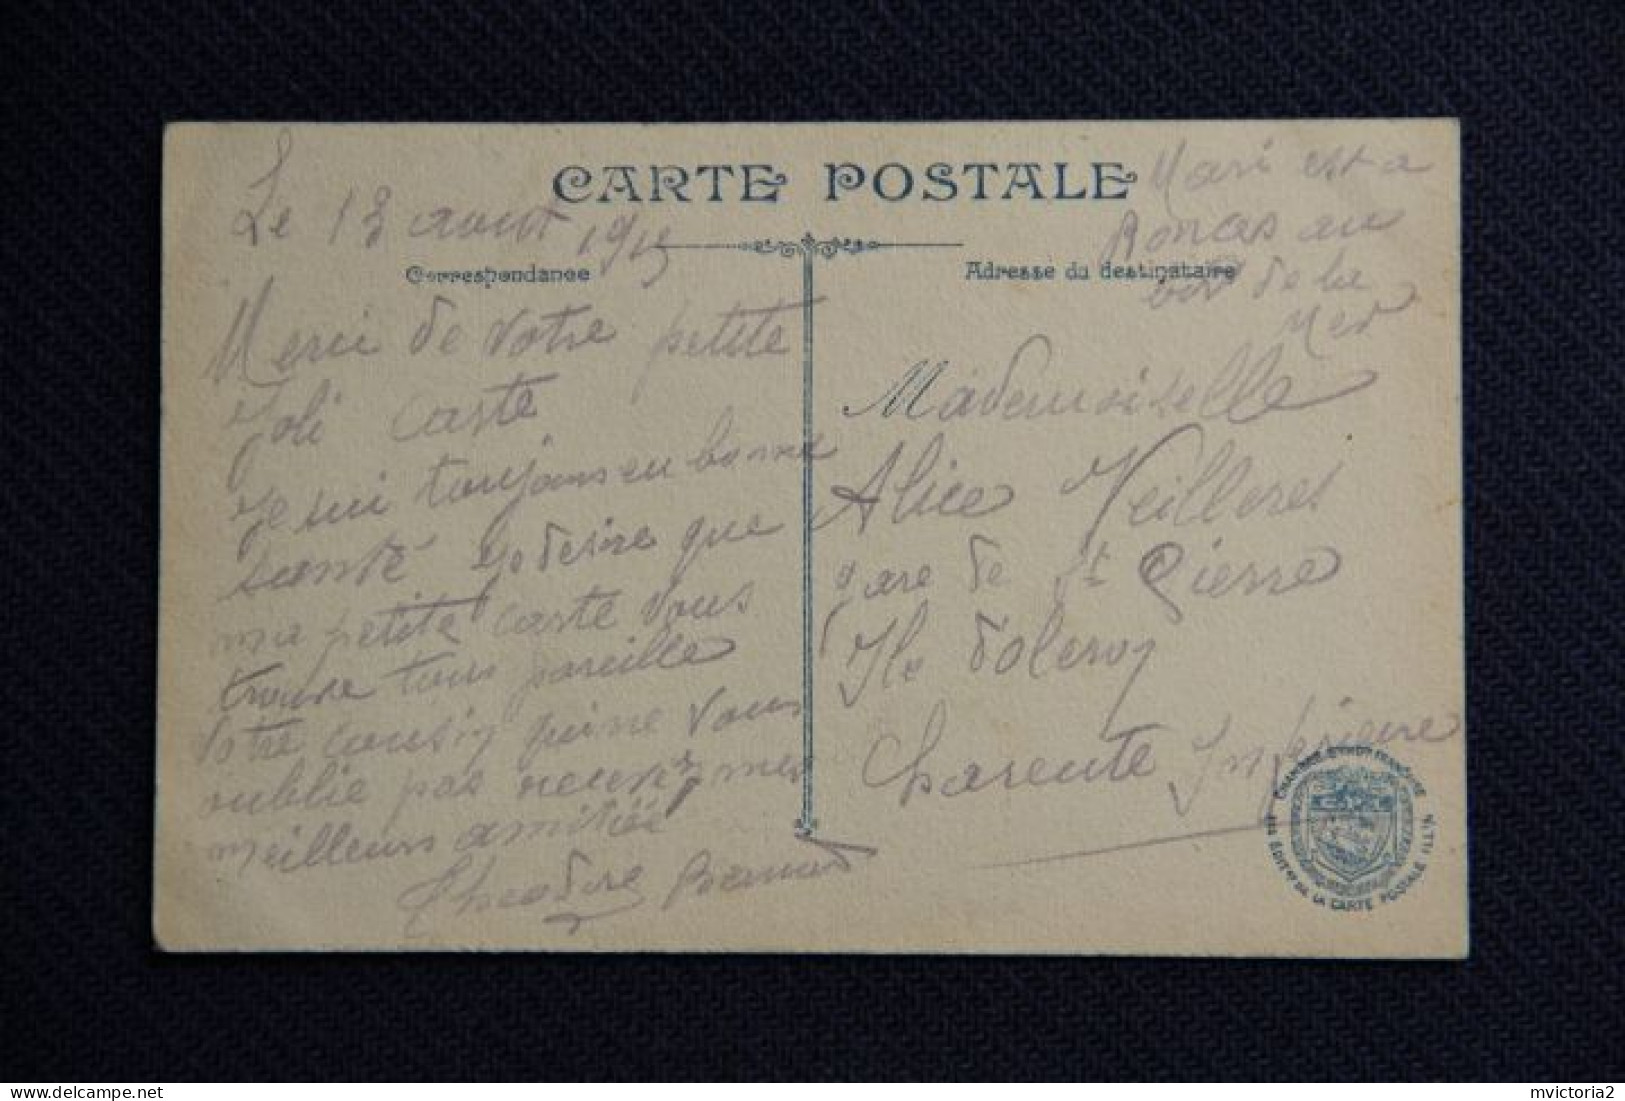 CARTE POSTALE
Le 13 aout 1915
Correspondance
Merci de votre petite
Joli carte
Je sui toujours en bonne
santé et desire que
ma petite carte vous
trouve tous pareille
Votre cousin qui ne vous
oublie pas recevez mes
meilleurs amitiés
Théodore
Mari est a
au
bor de la
Mer
Adresse du destinataire
Mademoiselle
Alice Veilleret
gare de St Pierre
Ile d'oleron
Charente Inferieure
CHAMBRE SYNDICALE FRANÇAISE
DES EDITrs DE LA CARTE POSTALE ILLtée
mvictoria2